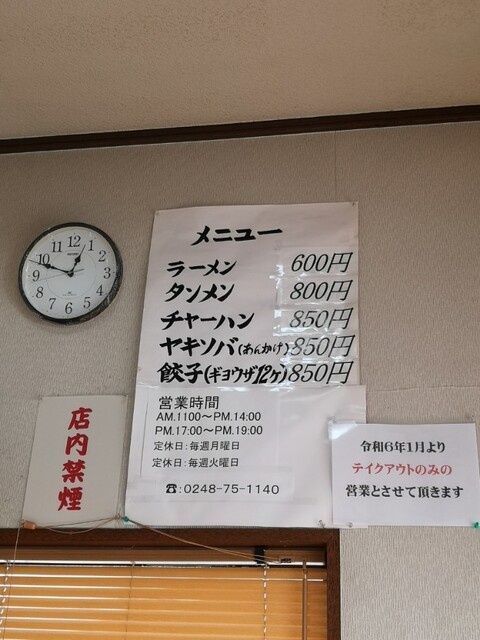 メニュー
ラーメン 600円
タンメン 800円
チャーハン 850円
ヤキソバ(あんかけ) 850円
餃子(ギョウザ12ケ) 850円
営業時間
AM.1100～PM.14:00
PM.17:00～PM.19:00
定休日:毎週月曜日
定休日:毎週火曜日
☎:0248-75-1140
店内禁煙
令和6年1月より
テイクアウトのみの
営業とさせて頂きます
12
1
2
3
4
5
6
7
8
9
10
11